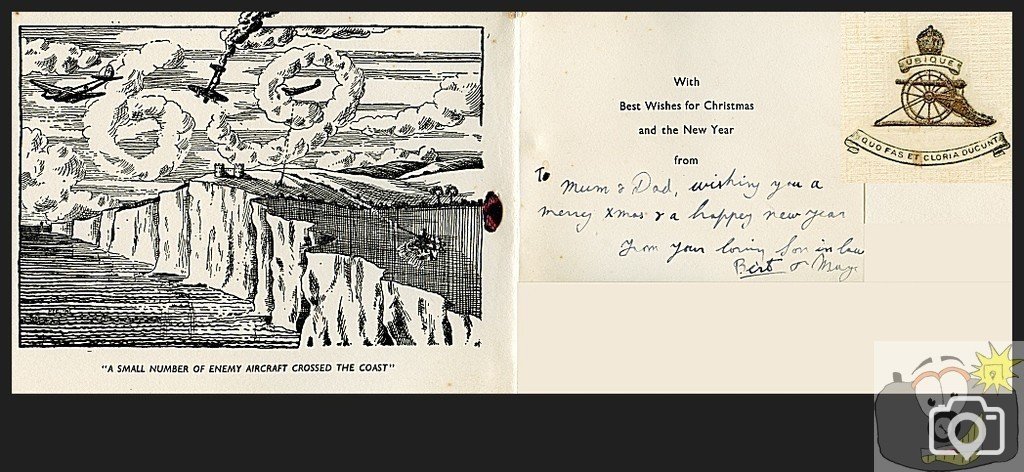 "A SMALL NUMBER OF ENEMY AIRCRAFT CROSSED THE COAST"
With
Best Wishes for Christmas
and the New Year
from
To Mum & Dad, wishing you a
merry Xmas & a happy new year
from your loving Son in law
Bert & May
UBIQUE
QUO FAS ET GLORIA DUCUNT